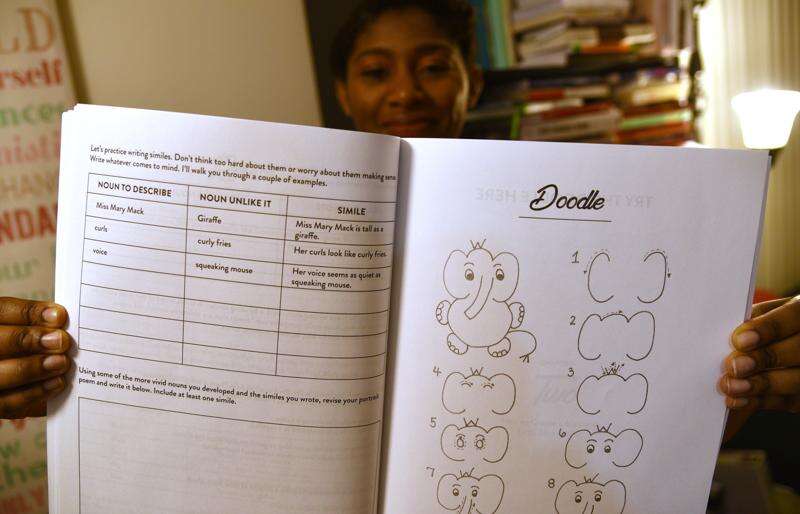 Let's practice writing similes. Don't think too hard about them or worry about them making sense.
Write whatever comes to mind. I'll walk you through a couple of examples.
NOUN TO DESCRIBE
NOUN UNLIKE IT
SIMILE
Miss Mary Mack
Giraffe
Miss Mary Mack is tall as a
giraffe.
curls
curly fries
Her curls look like curly fries.
voice
squeaking mouse
Her voice seems as quiet as
squeaking mouse.
Using some of the more vivid nouns you developed and the similes you wrote, revise your portrait
poem and write it below. Include at least one simile.
Doodle
1
2
4
3
5
6
7
8